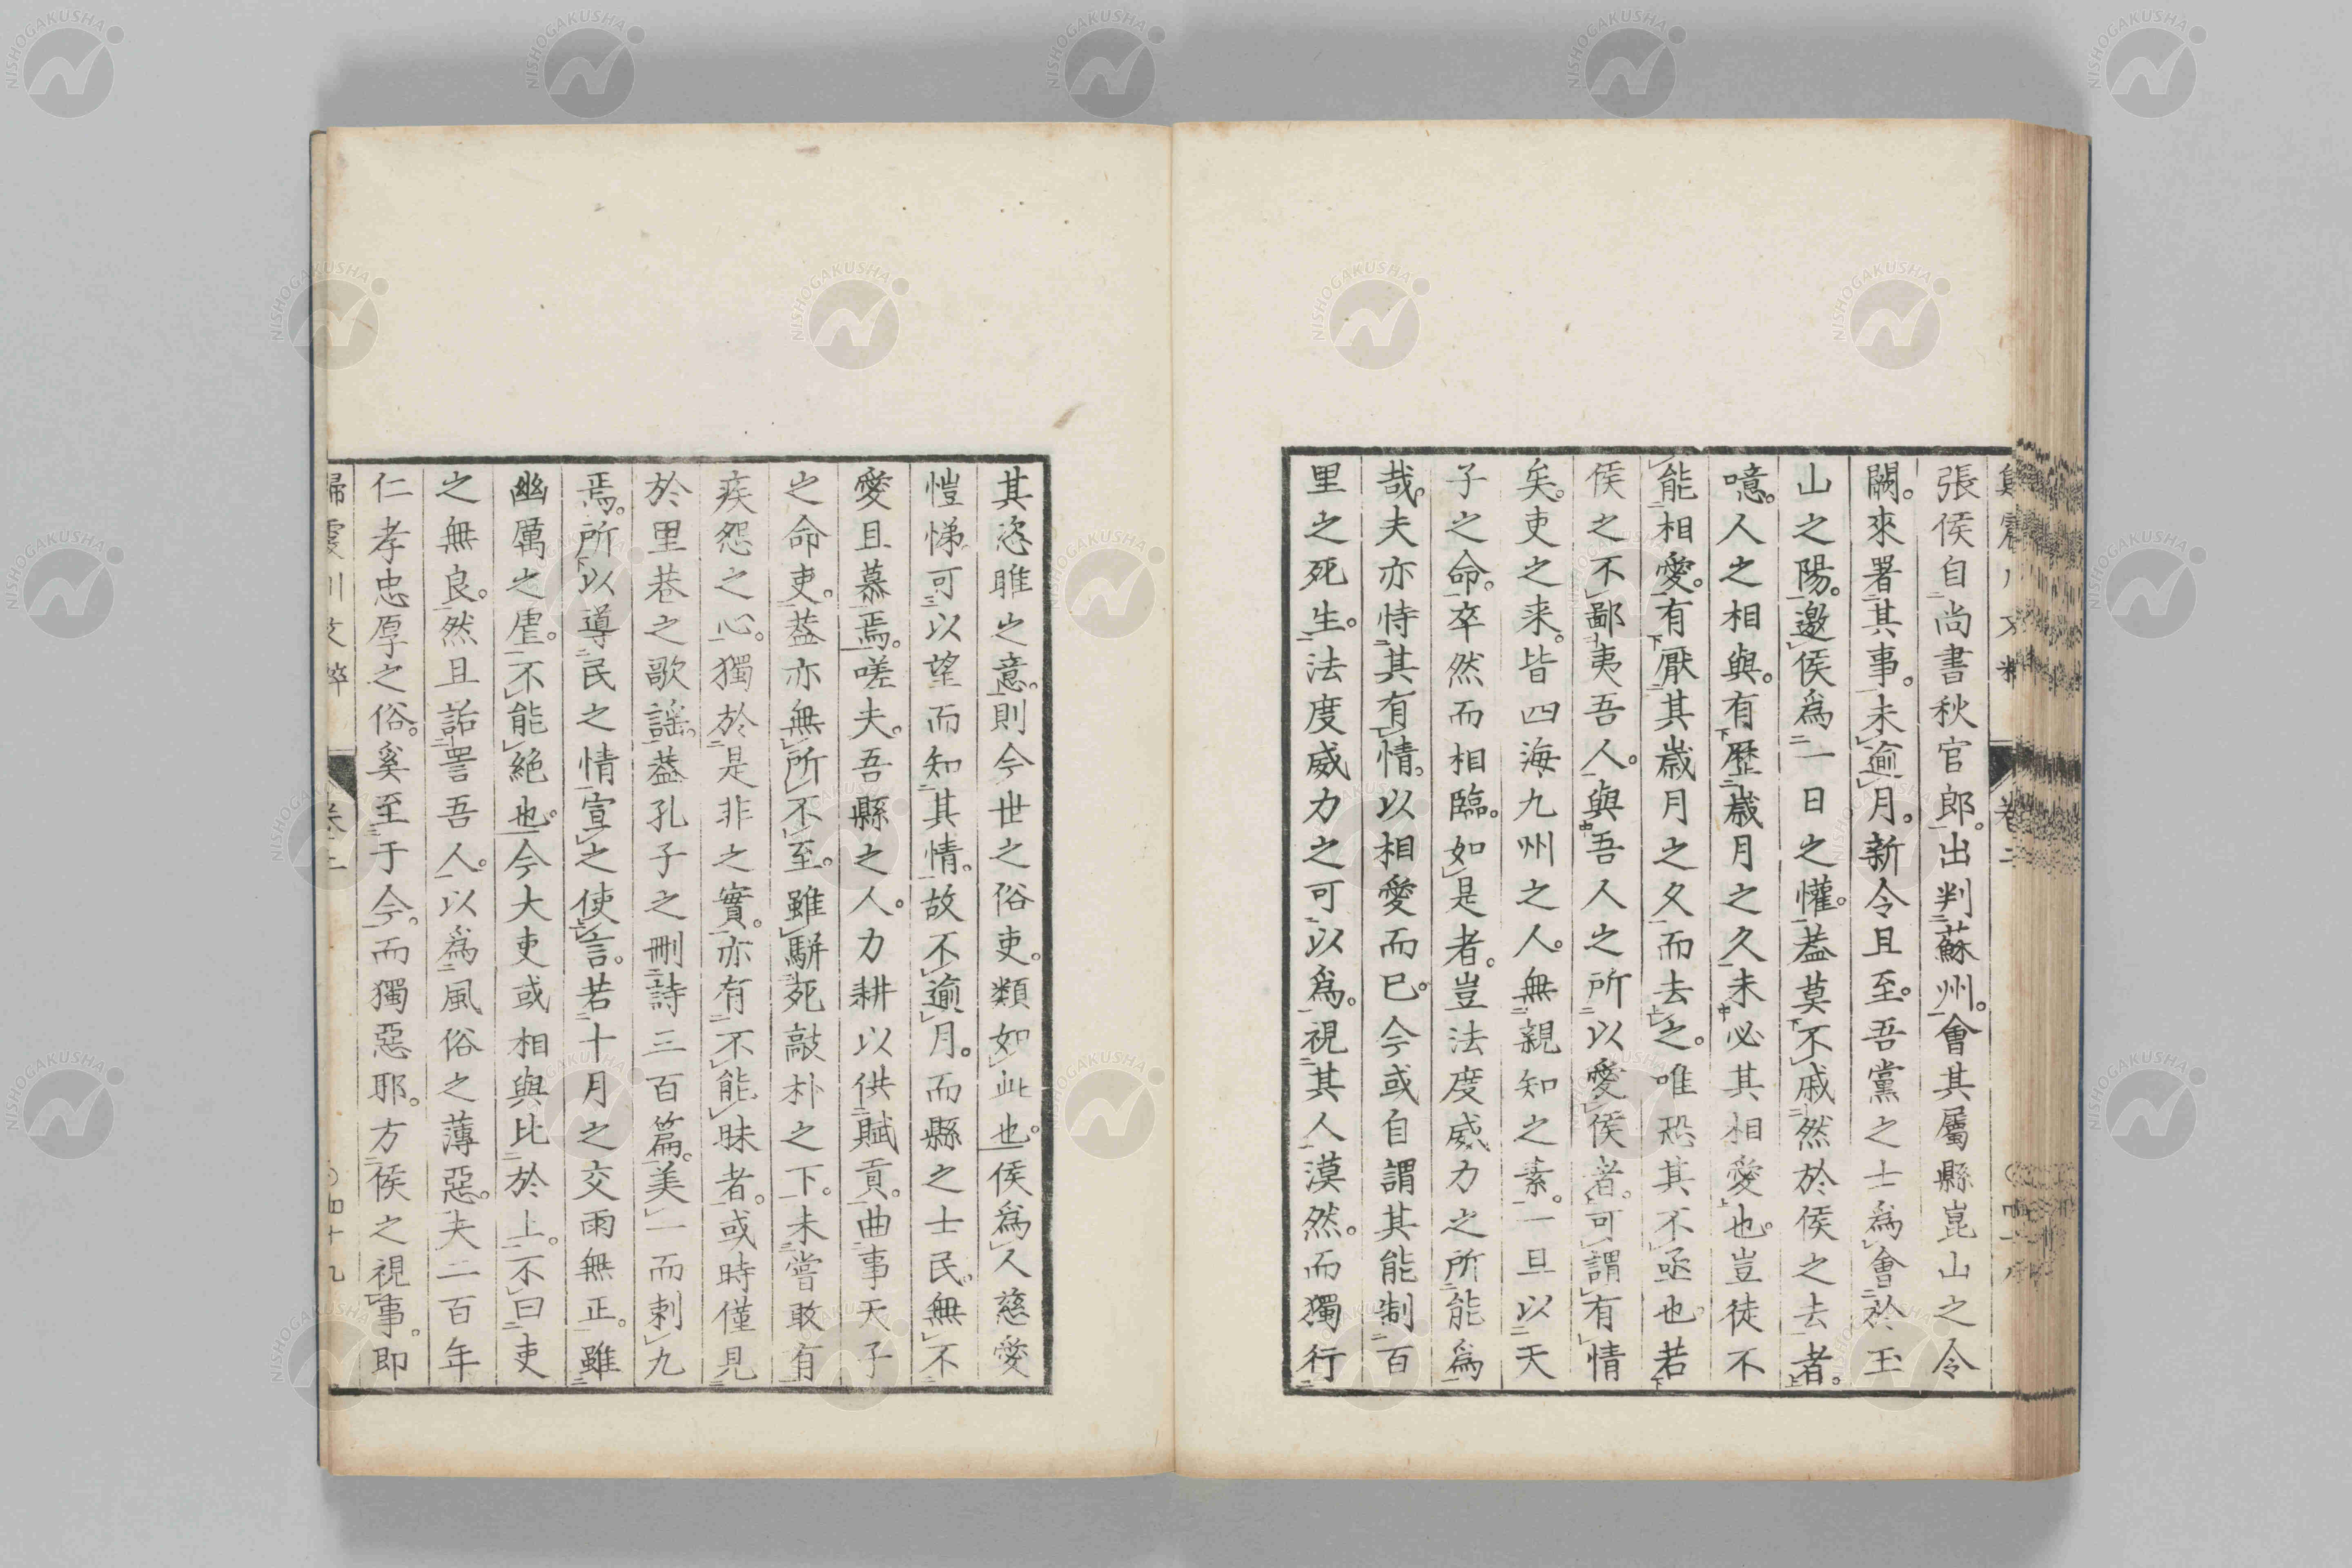 張侯自尚書秋官郎。出判蘇州。會其屬縣崑山之令
闕。來署其事。未逾月。新令且至。吾黨之士為會於玉
山之陽。邀侯爲一日之懽。葢莫不戚然於侯之去者。
噫。人之相與。有歷歲月之久。未必其相愛也。豈徒不
能相愛。有厭其歲月之久而去之。唯恐其不亟也。若
侯之不鄙夷吾人。與吾人之所以愛侯者。可謂有情
矣。吏之来。皆四海九州之人。無親知之素。一旦以天
子之命。卒然而相臨。如是者。豈法度威力之所能爲
哉。夫亦恃其有情。以相愛而已。今或自謂其能制百
里之死生。法度威力之可以為。視其人漠然。而獨行
其恣睢之意。則今世之俗吏。類如此也。侯爲人慈愛
愷悌。可以望而知其情。故不逾月。而縣之士民。無不
愛且慕焉。嗟夫。吾縣之人。力耕以供賦貢。曲事天子
之命吏。葢亦無所不至。雖駢死敲朴之下。未嘗敢有
疾怨之心。獨於是非之實。亦有不能昧者。或時僅見
於里巷之歌謡。葢孔子之刪詩三百篇。美一而刺九
焉。所以導民之情。宣之使言。若十月之交雨無正。雖
幽厲之虐。不能絕也。今大吏或相與比於上。不曰吏
之無良。然且詬詈吾人。以爲風俗之薄惡。夫二百年
仁孝忠厚之俗。奚至于今。而獨惡耶。方侯之視事。即
NISHOGAKUSHA